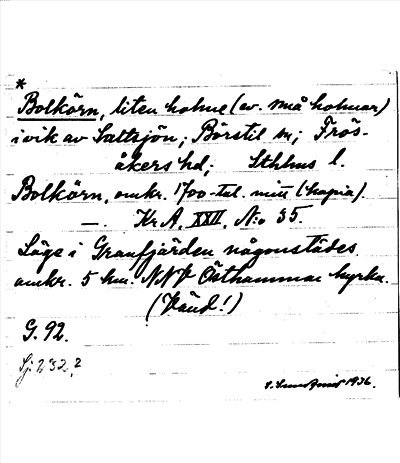 *
Bolkörn, liten holme (ev. små holmar)
i vik av Saltsjön; Börstil sn; Frös-
åkers hd; Sthlms l.
Bolkörn, omkr. 1700-tal. mitt (kopia).
—. Kr A, XXII, N:o 35.
Läge i Granfjärden någonstädes
omkr. 5 km. NNV Östhammar kyrka.
(Vänd!)
G. 92.
Sj. 232, 2
1936.